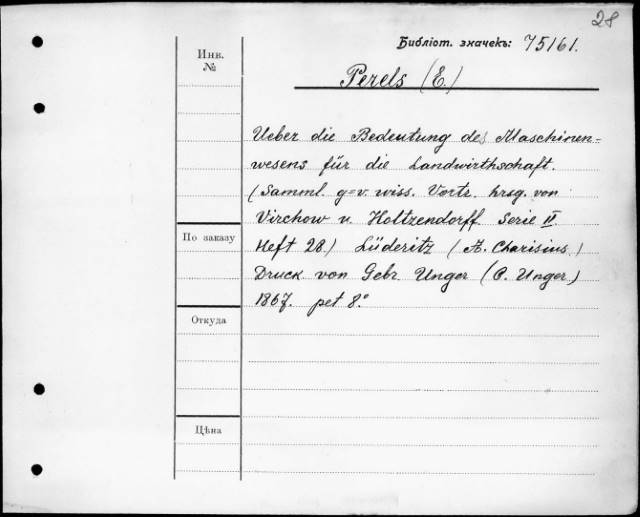 28
Библіот. значекъ: 75161.
Инв.
№
Perels (E.)
Ueber die Bedeutung des Maschinen-
wesens für die Landwirthschaft.
(Samml. g=v. wiss. Vortr. hrsg. von
Virchow u. Holtzendorff. Serie II
По заказу
Heft 28.) Lüderitz (A. Charisius.)
Druck von Gebr. Unger (C. Unger)
1867. pet 8.°
Откуда
Цѣна